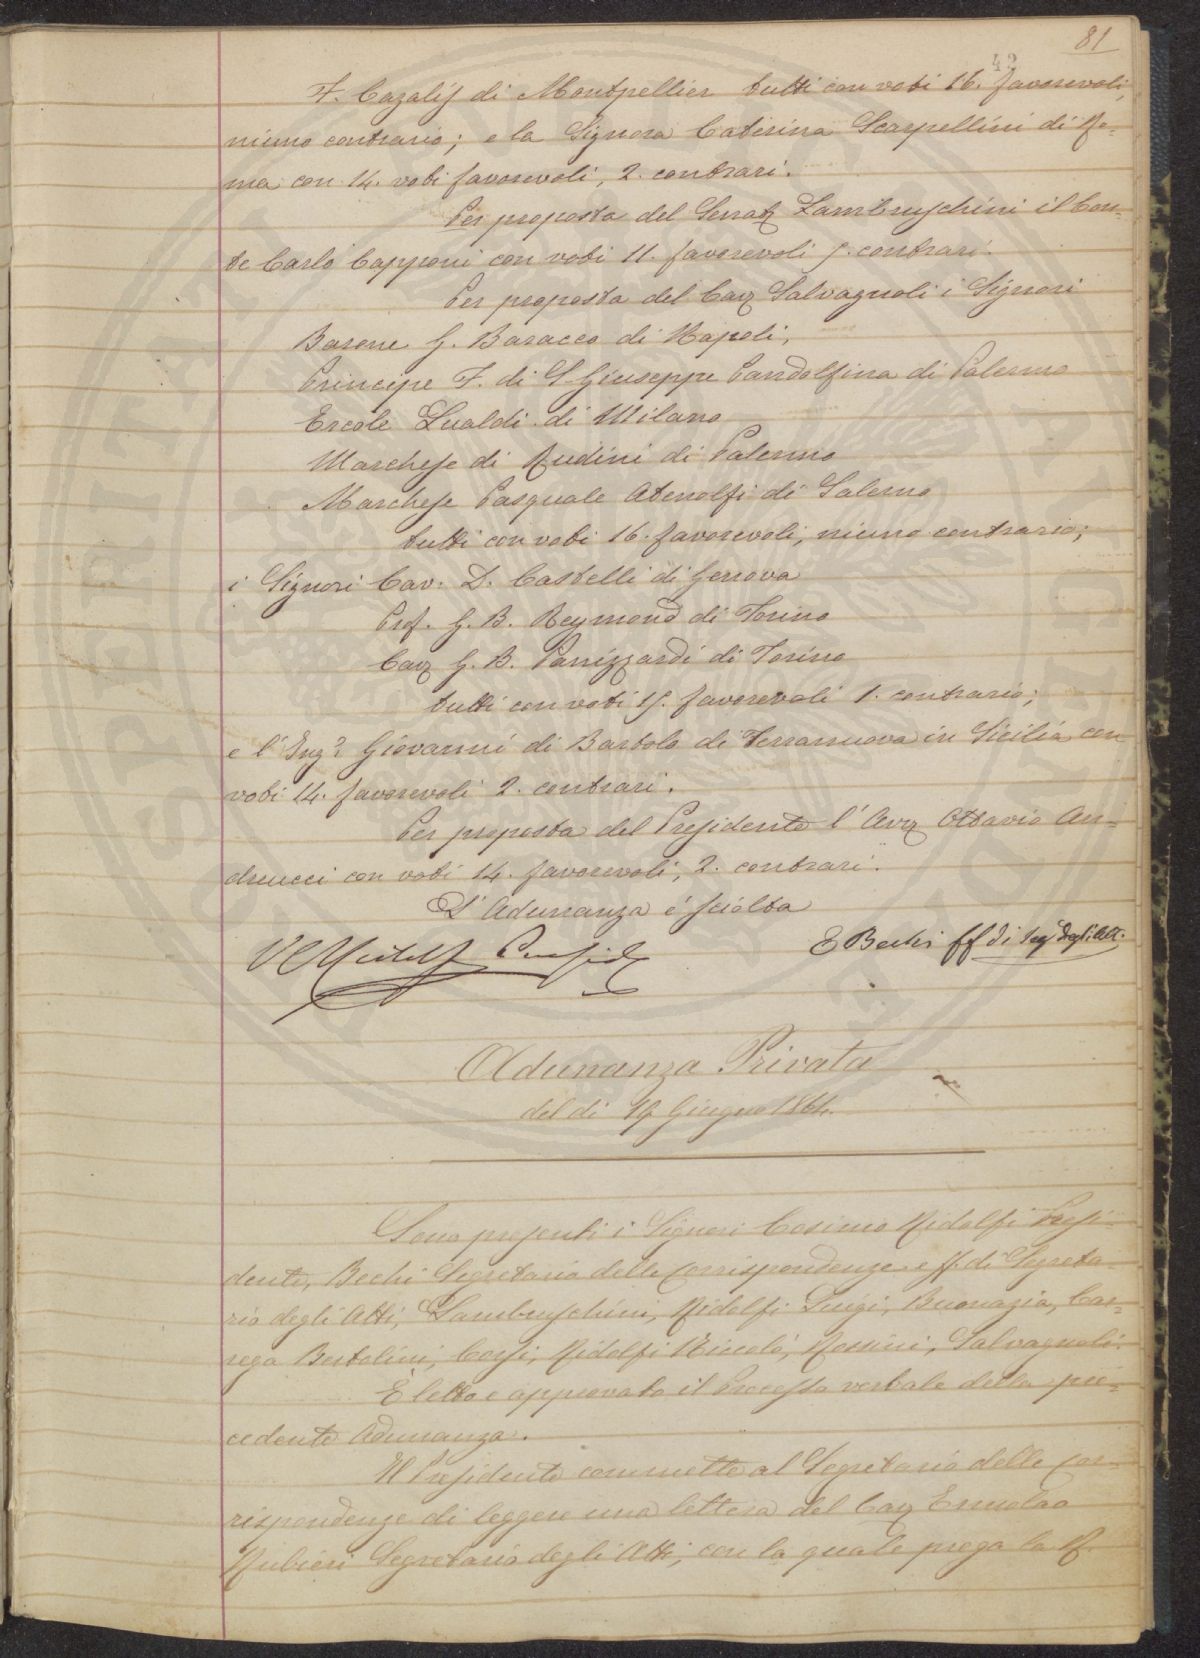 81
42
F. Cazalis di Montpellier tutti con voti 16. favorevoli,
niuno contrario; e la Signora Caterina Scarpellini di Ro-
ma con 14. voti favorevoli, 2. contrari.
Per proposta del Senat.e Lambruschini il Con-
te Carlo Capponi con voti 11. favorevoli 5. contrari.
Per proposta del Cav. Salvagnoli i Signori
Barone G. Baracco di Napoli,
Principe F. di S. Giuseppe Pandolfina di Palermo
Ercole Lualdi di Milano
Marchese di Rudini di Palermo
Marchese Pasquale Atenolfi di Salerno
tutti con voti 16. favorevoli, niuno contrario;
i Signori Cav. D. Castelli di Genova
Prof. G. B. Reymond di Torino
Cav. G. B. Panizzardi di Torino
tutti con voti 15. favorevoli 1. contrario;
e l'Ing.e Giovanni di Bartolo di Terranuova in Sicilia con
voti 14. favorevoli 2. contrari.
Per proposta del Presidente l'Avv. Ottavio An-
dreucci con voti 14. favorevoli, 2. contrari.
L'Adunanza è sciolta
E Bechi ff di Seg. degli Att.
Adunanza Privata
del di 19 Giugno 1864.
Sono presenti i Signori Cosimo Ridolfi Presi-
dente, Bechi Segretario delle corrispondenze e ff. di Segreta-
rio degli Atti, Lambruschini, Ridolfi Luigi, Buonazia, Ca-
rega Bertolini, Corsi, Ridolfi Niccolò, Rossini, Salvagnoli.
È letto e approvato il Processo verbale della pre-
cedente Adunanza.
Il Presidente commette al Segretario delle cor-
rispondenze di leggere una lettera del Cav. Ermolao
Rubieri Segretario degli Atti, con la quale prega la R.